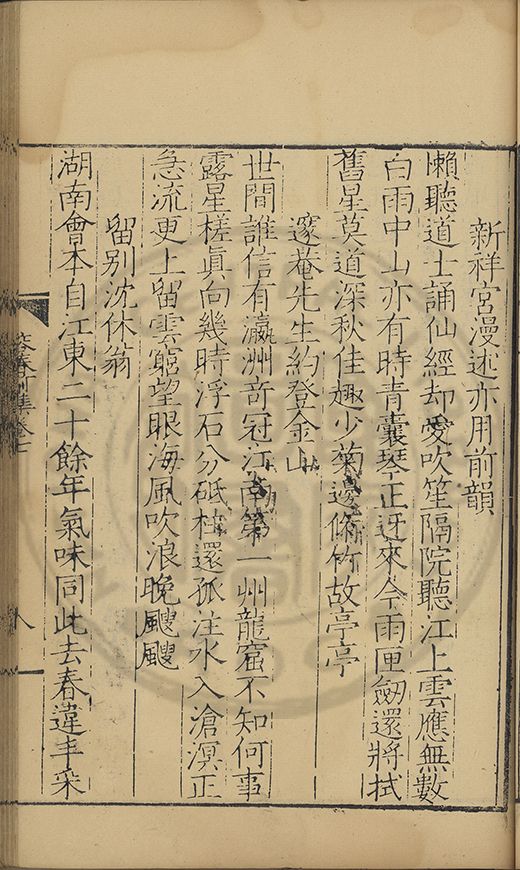 新祥宮漫述亦用前韻
懶聽道士誦仙經却愛吹笙隔院聽江上雲應無數
白雨中山亦有時青囊琴正迓來今雨匣劒還將拭
舊星莫道深秋佳趣少菊邊脩竹故亭亭
邃菴先生約登金山
世間誰信有瀛洲奇冠江南第一州龍窟不知何事
露星槎眞向幾時浮石分砥柱還孤注水入滄溟正
急流更上留雲窮望眼海風吹浪晚颼颼
留别沈休翁
湖南會本自江東二十餘年氣味同此去春違丰采
八